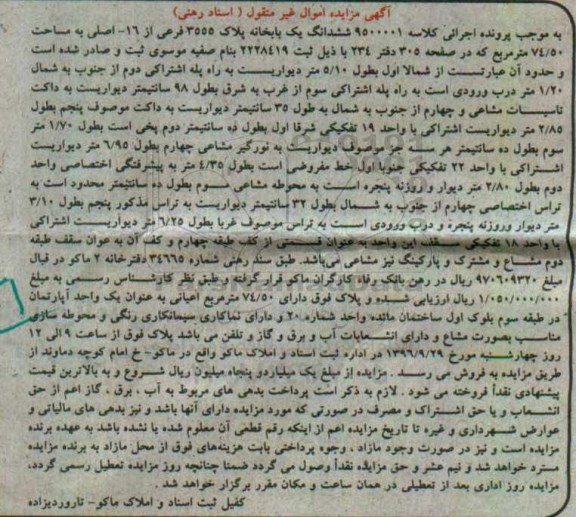 آگهی مزایده اموال غیر منقول ( اسناد رهنی)
به موجب پرونده اجرائی کلاسه ۹۵۰۰۰۰۱ ششدانگ یک بابخانه پلاک ۳۵۵۵ فرعی از ۱۶- اصلی به مساحت
۷۴/۵۰ مترمربع که در صفحه ۳۰۵ دفتر ۲۳۴ با ذیل ثبت ۲۲۲۸۴۱۹ بنام صفیه موسوی ثبت و صادر شده است
و حدود آن عبارتست از شمالا اول بطول ۵/۱۰ متر دیواریست به راه پله اشتراکی دوم از جنوب به شمال
۱/۲۰ متر درب ورودی است به راه پله اشتراکی سوم از غرب به شرق بطول ۹۸ سانتیمتر دیواریست به داکت
تاسیسات مشاعی و چهارم از جنوب به شمال به طول ۳۵ سانتیمتر دیواریست به داکت موصوف پنجم بطول
۲/۸۵ متر دیواریست اشتراکی با واحد ۱۹ تفکیکی شرقا اول بطول ده سانتیمتر دوم پخی است بطول ۱/۷۰ متر
سوم بطول ده سانتیمتر هر سه جز موصوف دیواریست به نورگیر مشاعی چهارم بطول ۶/۹۵ متر دیواریست
اشتراکی با واحد ۲۲ تفکیکی جنوبا اول خط مفروضی است بطول ۴/۳۵ متر به پیشرفتگی اختصاصی واحد
دوم بطول ۲/۸۰ متر دیوار و روزنه پنجره است به محوطه مشاعی سوم بطول ده سانتیمتر محدود است به
تراس اختصاصی چهارم از جنوب به شمال بطول ۳۲ سانتیمتر دیواریست به تراس مذکور پنجم بطول ۳/۱۰
متر دیوار وروزنه پنجره و درب ورودی است به تراس موصوف غربا بطول ۶/۲۵ متر دیواریست اشتراکی
با واحد ۱۸ تفکیکی سقف این واحد به عنوان قسمتی از کف طبقه چهارم و کف آن به عوان سقف طبقه
دوم مشاع و مشترک و پارکینگ نیز مشاعی می‌باشد. طبق سند رهنی شماره ۳۴۶۶۵ دفترخانه ۲ ماکو در قبال
مبلغ ۹۷۰۶۰۹۳۲۰ ریال در رهن بانک رفاه کارگران ماکو قرار گرفته و طبق نظر کارشناس رسمی به مبلغ
۱/۰۵۰/۰۰۰/۰۰۰ ریال ارزیابی شده و پلاک فوق دارای ۷۴/۵۰ مترمربع اعیانی به عنوان یک واحد آپارتمان
در طبقه سوم بلوک اول ساختمان مائده واحد شماره ۲۰ و دارای نماکاری سیمانکاری رنگی و محوطه سازی
مناسب بصورت مشاع و دارای انشعابات آب و برق و گاز و تلفن می باشد پلاک فوق از ساعت ۹ الی ۱۲
روز چهارشنبه مورخ ۱۳۹۶/۹/۲۹ در اداره ثبت اسناد و املاک ماکو واقع در ماکو- خ امام کوچه دماوند از
طریق مزایده به فروش می رسد . مزایده از مبلغ یک میلیاردو پنجاه میلیون ریال شروع و به بالاترین قیمت
پیشنهادی نقداً فروخته می شود . لازم به ذکر است پرداخت بدهی های مربوط به آب ، برق ، گاز اعم از حق
انشعاب و یا حق اشتراک و مصرف در صورتی که مورد مزایده دارای آنها باشد و نیز بدهی های مالیاتی و
عوارض شهرداری و غیره تا تاریخ مزایده اعم از اینکه رقم قطعی آن معلوم شده یا نشده باشد به عهده برنده
مزایده است و نیز در صورت وجود مازاد ، وجوه پرداختی بابت هزینه‌های فوق از محل مازاد به برنده مزایده
مسترد خواهد شد و نیم عشر و حق مزایده نقداً وصول می گردد ضمنا چنانچه روز مزایده تعطیل رسمی گردد،
مزایده روز اداری بعد از تعطیلی در همان ساعت و مکان مقرر برگزار خواهد شد .
کفیل ثبت اسناد و املاک ماکو- تاروردیزاده